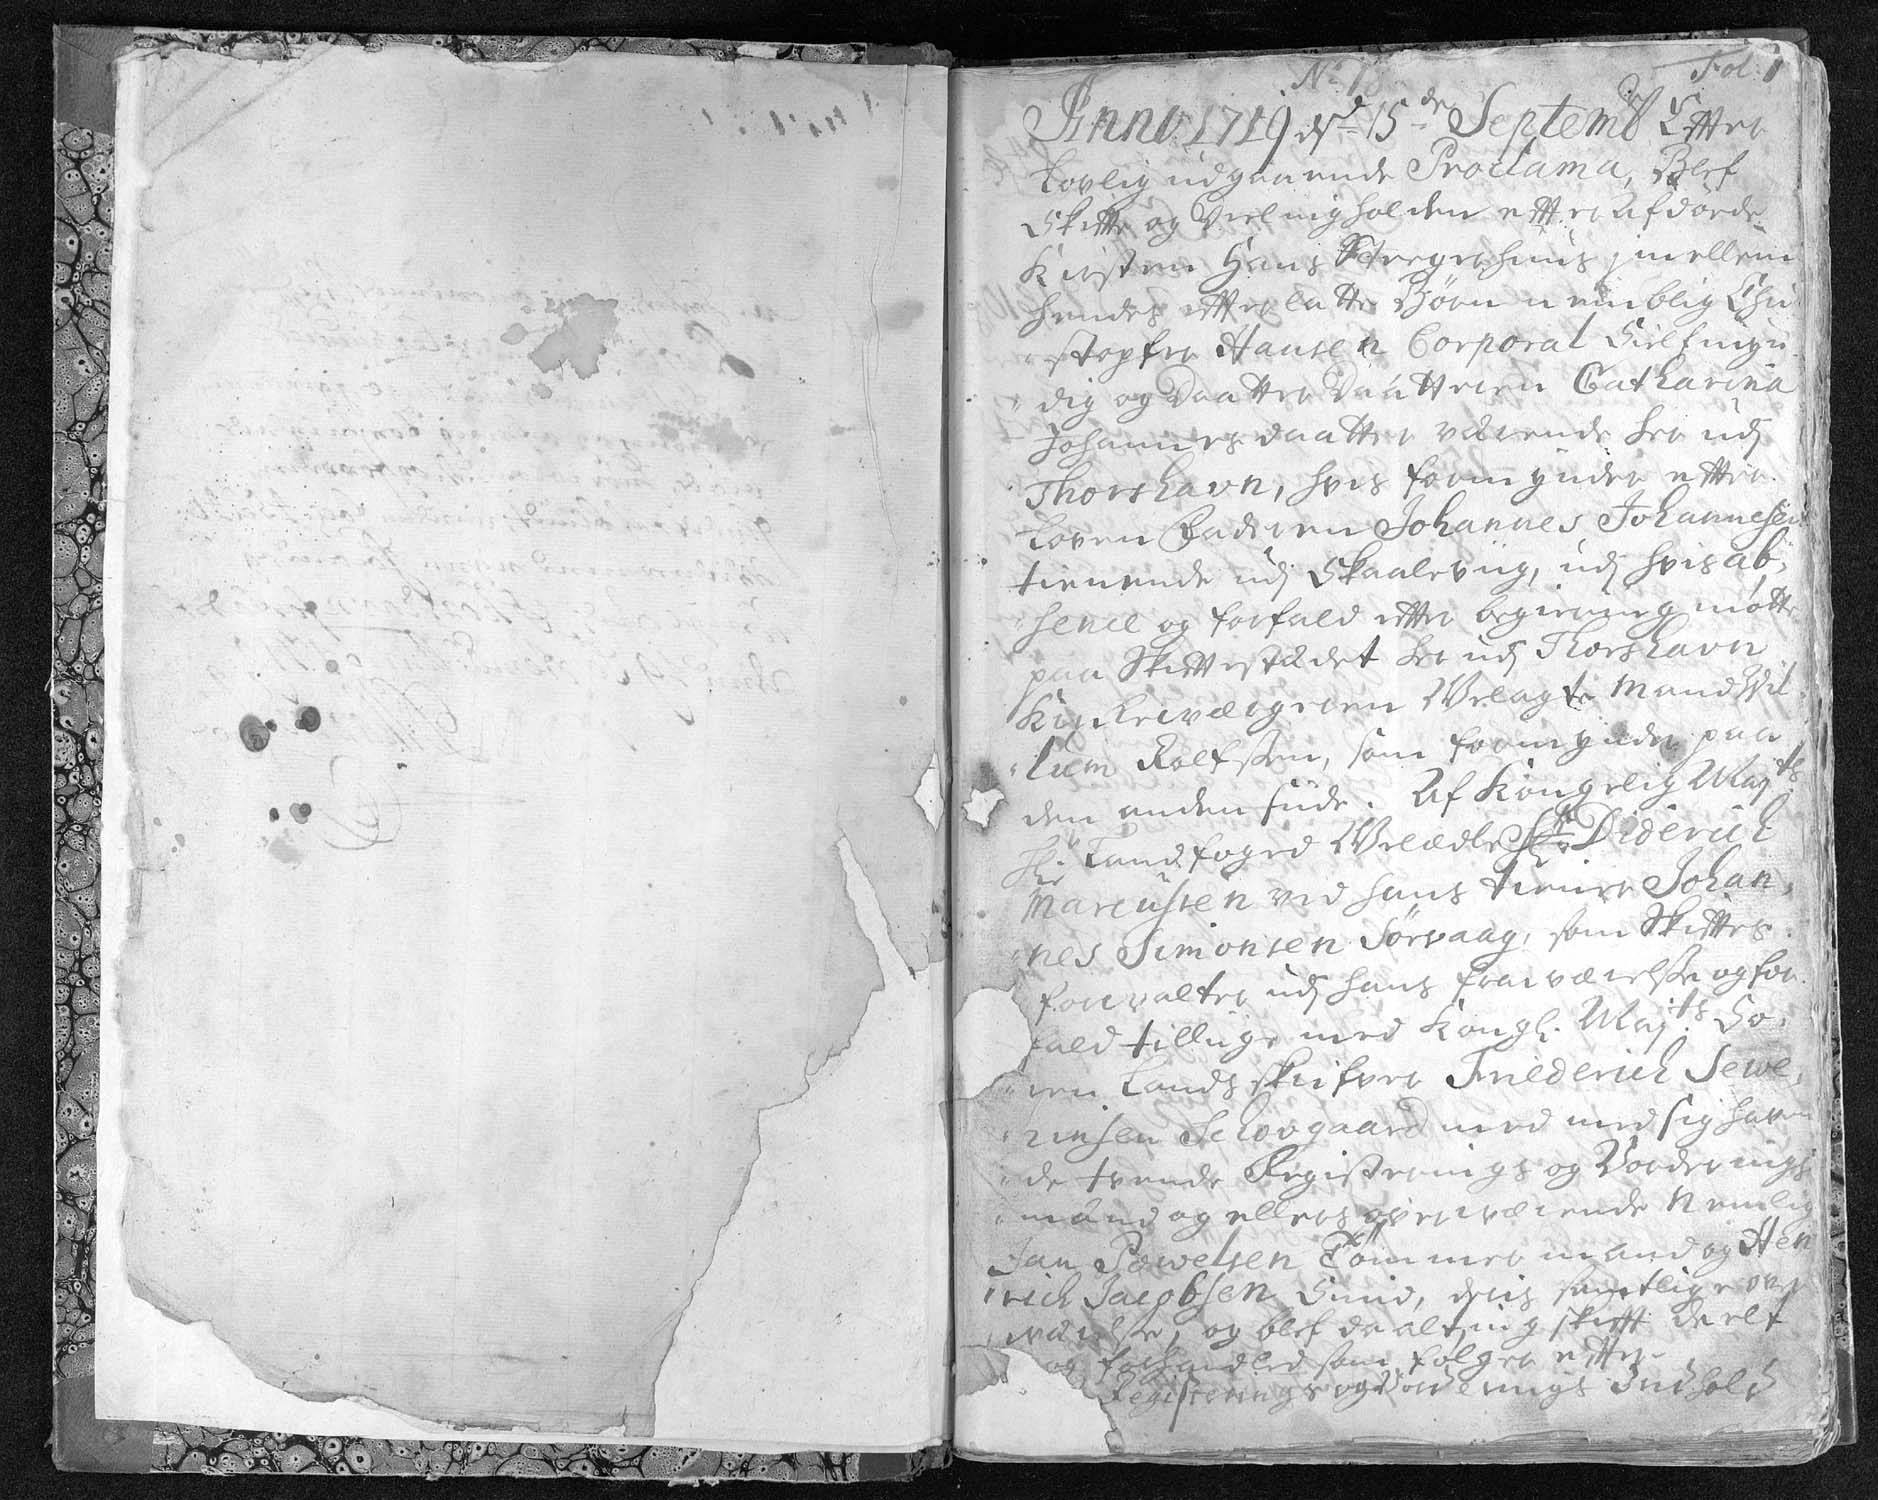 No 78
Fol. 1
Anno 1719 dend 15de Septembr Effter
Lovlig udgaaende Proclama, Blef
Skifte og Deeling holden effter afdøde
Kirsten Hans Stregershuus jmellem
hendes effterlatte Børn nemblig Chri
stopher Hansen Corporal Sielfmyn
dig og Daatter Daatteren Catharina
Johannesdaatter værende her udj
Thorshavn, hvis formynder effter
Loven Faderen Johannes Johannesen
tienende udj Skaaleviig, udj hvis ab,
sence og forfald effter begiering mötte
paa Skiftestædet her udj Thorshavn
Kirckeværgeren Velagte Mand Wil
lum Rolfsen, som formynder paa
den anden siide. Af Kongelig Mayts
Hr Landfoged Velædle Hr Diderich
Marcussen ved hans tienere Johan,
nes Simonsen Sörvaag, som Skiftes
forvalter udj hans fraværelse og for
fald tillige med Kongl. Mayts So,
ren Landsskrifver Friederich Seve,
rinsen Schovgaard med med sig haven
de tvende Registerings og Vorderings
mænd og ellers overværende Nemlig
Jan Powelsen Tömmermand og Hen
rich Jacobsen Smid, deris samtlige over
værelse, og blef da alting skifft deelt
og forhandled som fölger effter
Registerings og Vorderings Indhold